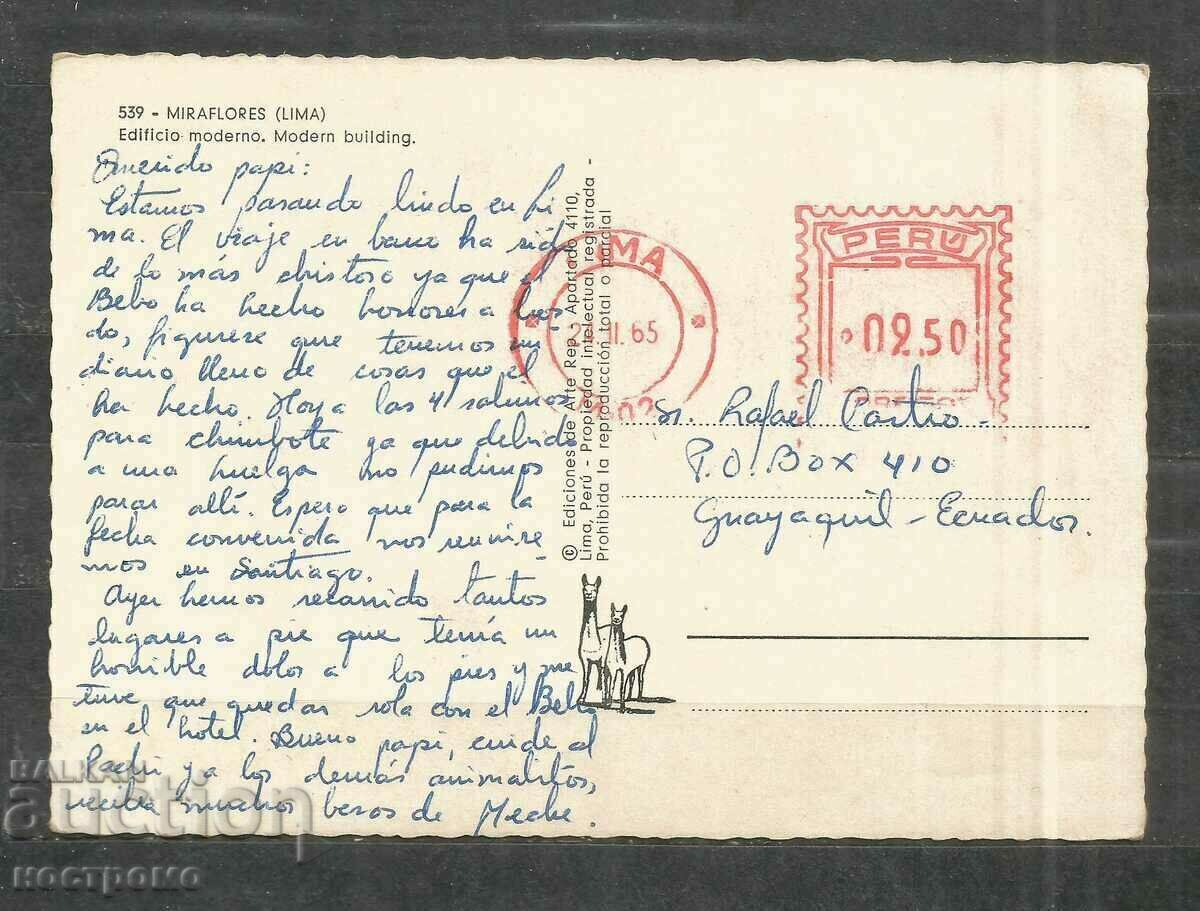 539 - MIRAFLORES (LIMA)
Edificio moderno. Modern building.
Querido papi:
Estamos pasando lindo en Li
ma. El viaje en barco ha sido
de lo más chistoso ya que el
Bebo ha hecho horrores a bor
do, figurese que tenemos un
diario lleno de cosas que el
ha hecho. Hoy a las 4 salimos
para Chimbote ya que debido
a una huelga no pudimos
parar allí. Espero que para la
fecha convenida nos reunire
mos en Santiago.
Ayer hemos recorrido tantos
lugares a pie que tenía un
horrible dolor a los pies y me
tuve que quedar sola con el Bebo
en el hotel. Bueno papi, cuide al
y a los demás animalitos,
reciba muchos besos de Meche.
© Ediciones de Arte Rep. Apartado 4110,
Lima, Perú - Propiedad intelectual registrada -
Prohibida la reproducción total o parcial
LIMA
II.65
PERÚ
02.50
Sr. Rafael Castro
P.O. Box 410
Guayaquil - Ecuador.
BALKAN
auction
костромо